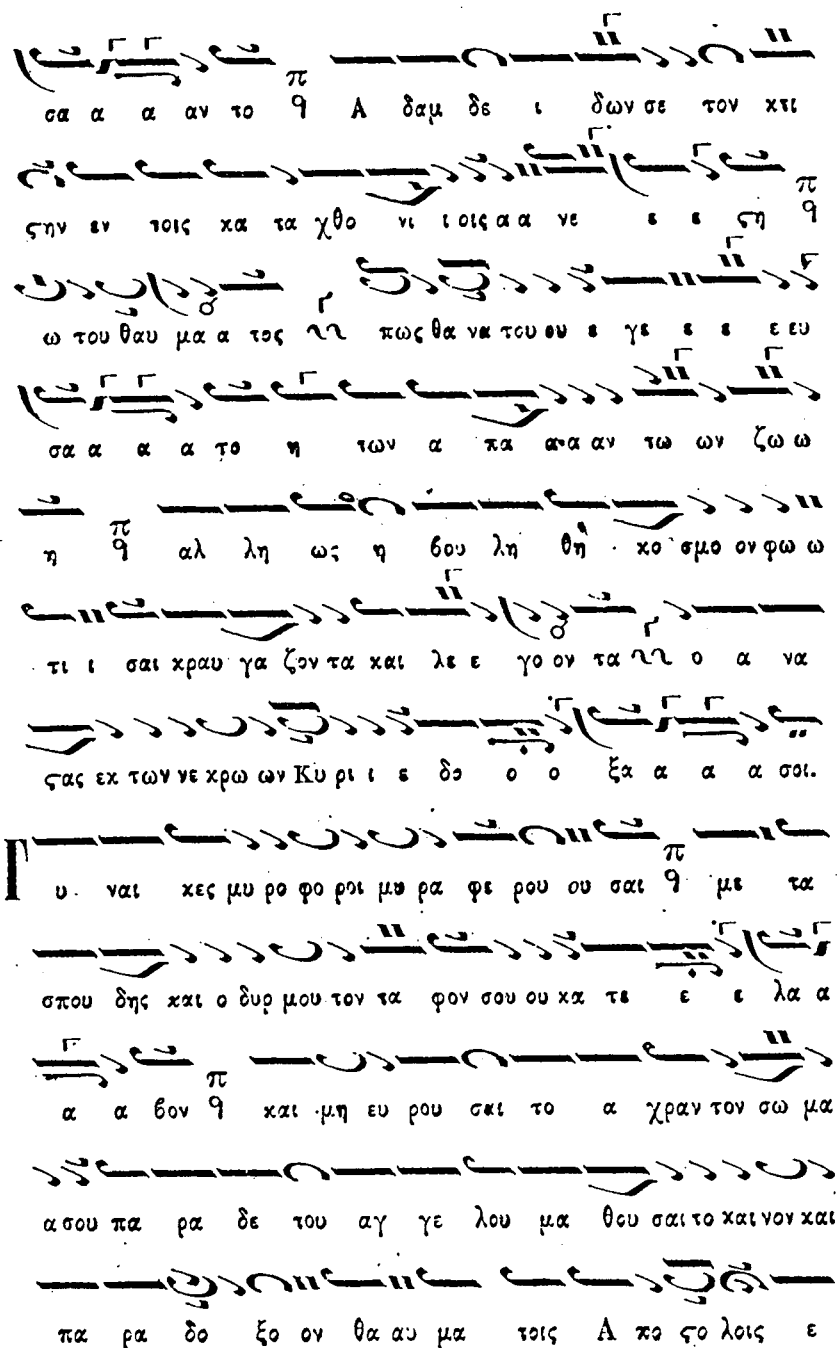 σα α α αν το π q Α δαμ δε ι δων σε τον κτι
ϛην εν τοις κα τα χθο νι ι οις α α νε ε ε ϛη π q
ω του θαυ μα α τος πως θα να του ου ε γε ε ε ε ευ
σα α α α το η των α πα α α αν τω ων ζω ω
η π q αλ λη ως η βου λη θη κο σμο ον φω ω
τι ι σαι κραυ γα ζον τα και λε ε γο ον τα ο α να
ϛας εκ των νε κρω ων Κυ ρι ι ε δο ο ο ξα α α α σοι.
Γυ ναι κες μυ ρο φο ροι μυ ρα φε ρου ου σαι π q με τα
σπου δης και ο δυρ μου τον τα φον σου ου κα τε ε ε λα α
α α βον π q και μη ευ ρου σαι το α χραν τον σω μα
α σου πα ρα δε του αγ γε λου μα θου σαι το και νον και
πα ρα δο ξο ον θα αυ μα τοις Α πο ϛο λοις ε